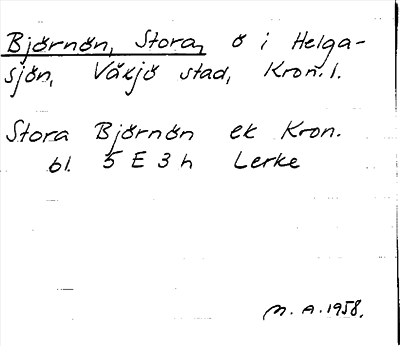 Björnön, Stora, ö i Helga-
sjön, Växjö stad, Kron. l.
Stora Björnön ek Kron.
bl. 5 E 3 h Lerke
M. A. 1958.